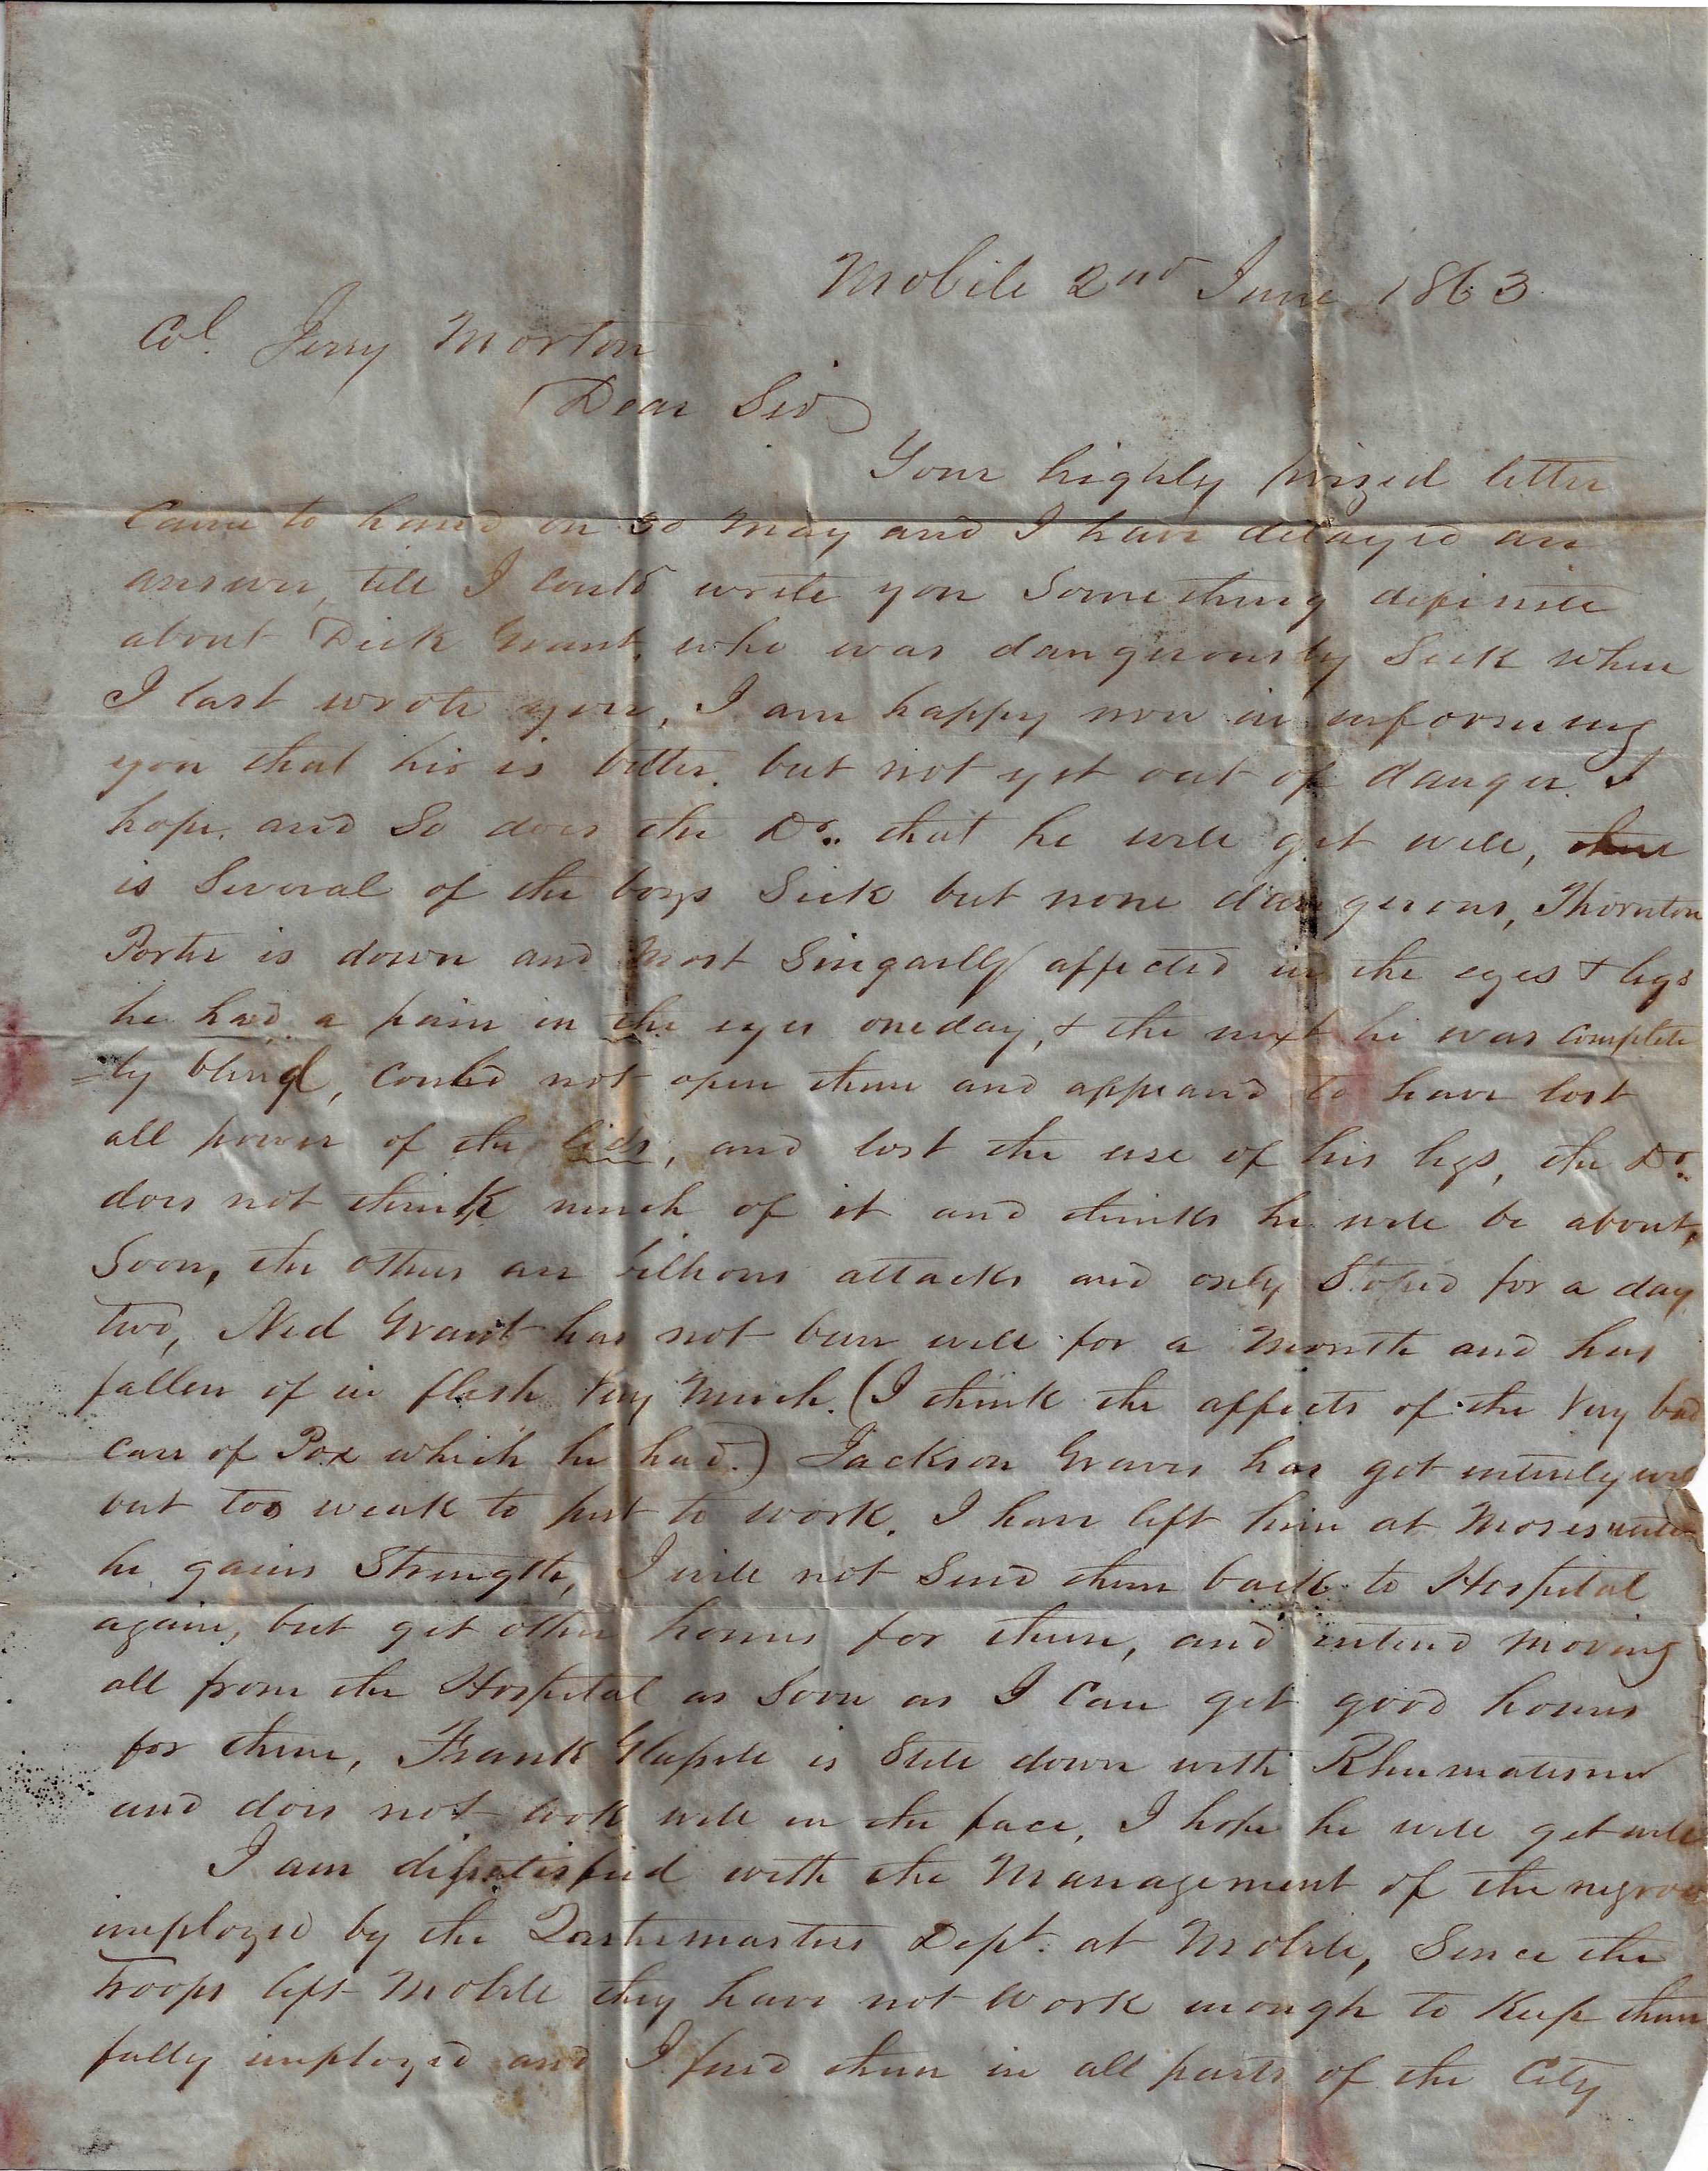 Mobile 2nd June 1863
Col. Jerry Morton
Dear Sir
Your highly prized letter
came to hand on 30 May and I have delayed an
answer, till I could write you Something definite
about Dick Grant, who was dangerously Sick when
I last wrote you, I am happy now in informing
you that his is better. but not yet out of danger. I
hope, and So does the Dr.. that he will get well, there
is Several of the boys Sick but none dangerous, Thornton
Porter is down and Most Singarlly affected in the eyes & legs
he had a pain in the eyes one day, & the next he was complete
=ly blind, could not open them and appeard to have lost
all power of the lids, and lost the use of his legs, the Dr..
does not think much of it and thinks he will be about,
Soon, the others are billious attacks and only Stoped for a day
two, Ned Grant has not been well for a Month and has
fallen of in flesh Very Much. (I think the affects of the Very bad
case of Pox which he had.) Jackson Graves has got entirely well
but too weak to put to work. I have left him at Moses until
he gains Strength, I will not Send them back to Hospital
again, but get other homes for them, and intend Moving
all from the Hospital as Soon as I Can get good homes
for them, Frank is Still down with Rhumatism
and does not look well in the face, I hope he will get well
I am dissatisfied with the Management of the negroes
imployed by the Qartermasters Dept. at Mobile, Since the
Troops left Mobile they have not Work enough to Keep them
fully imployed and I find them in all parts of the City